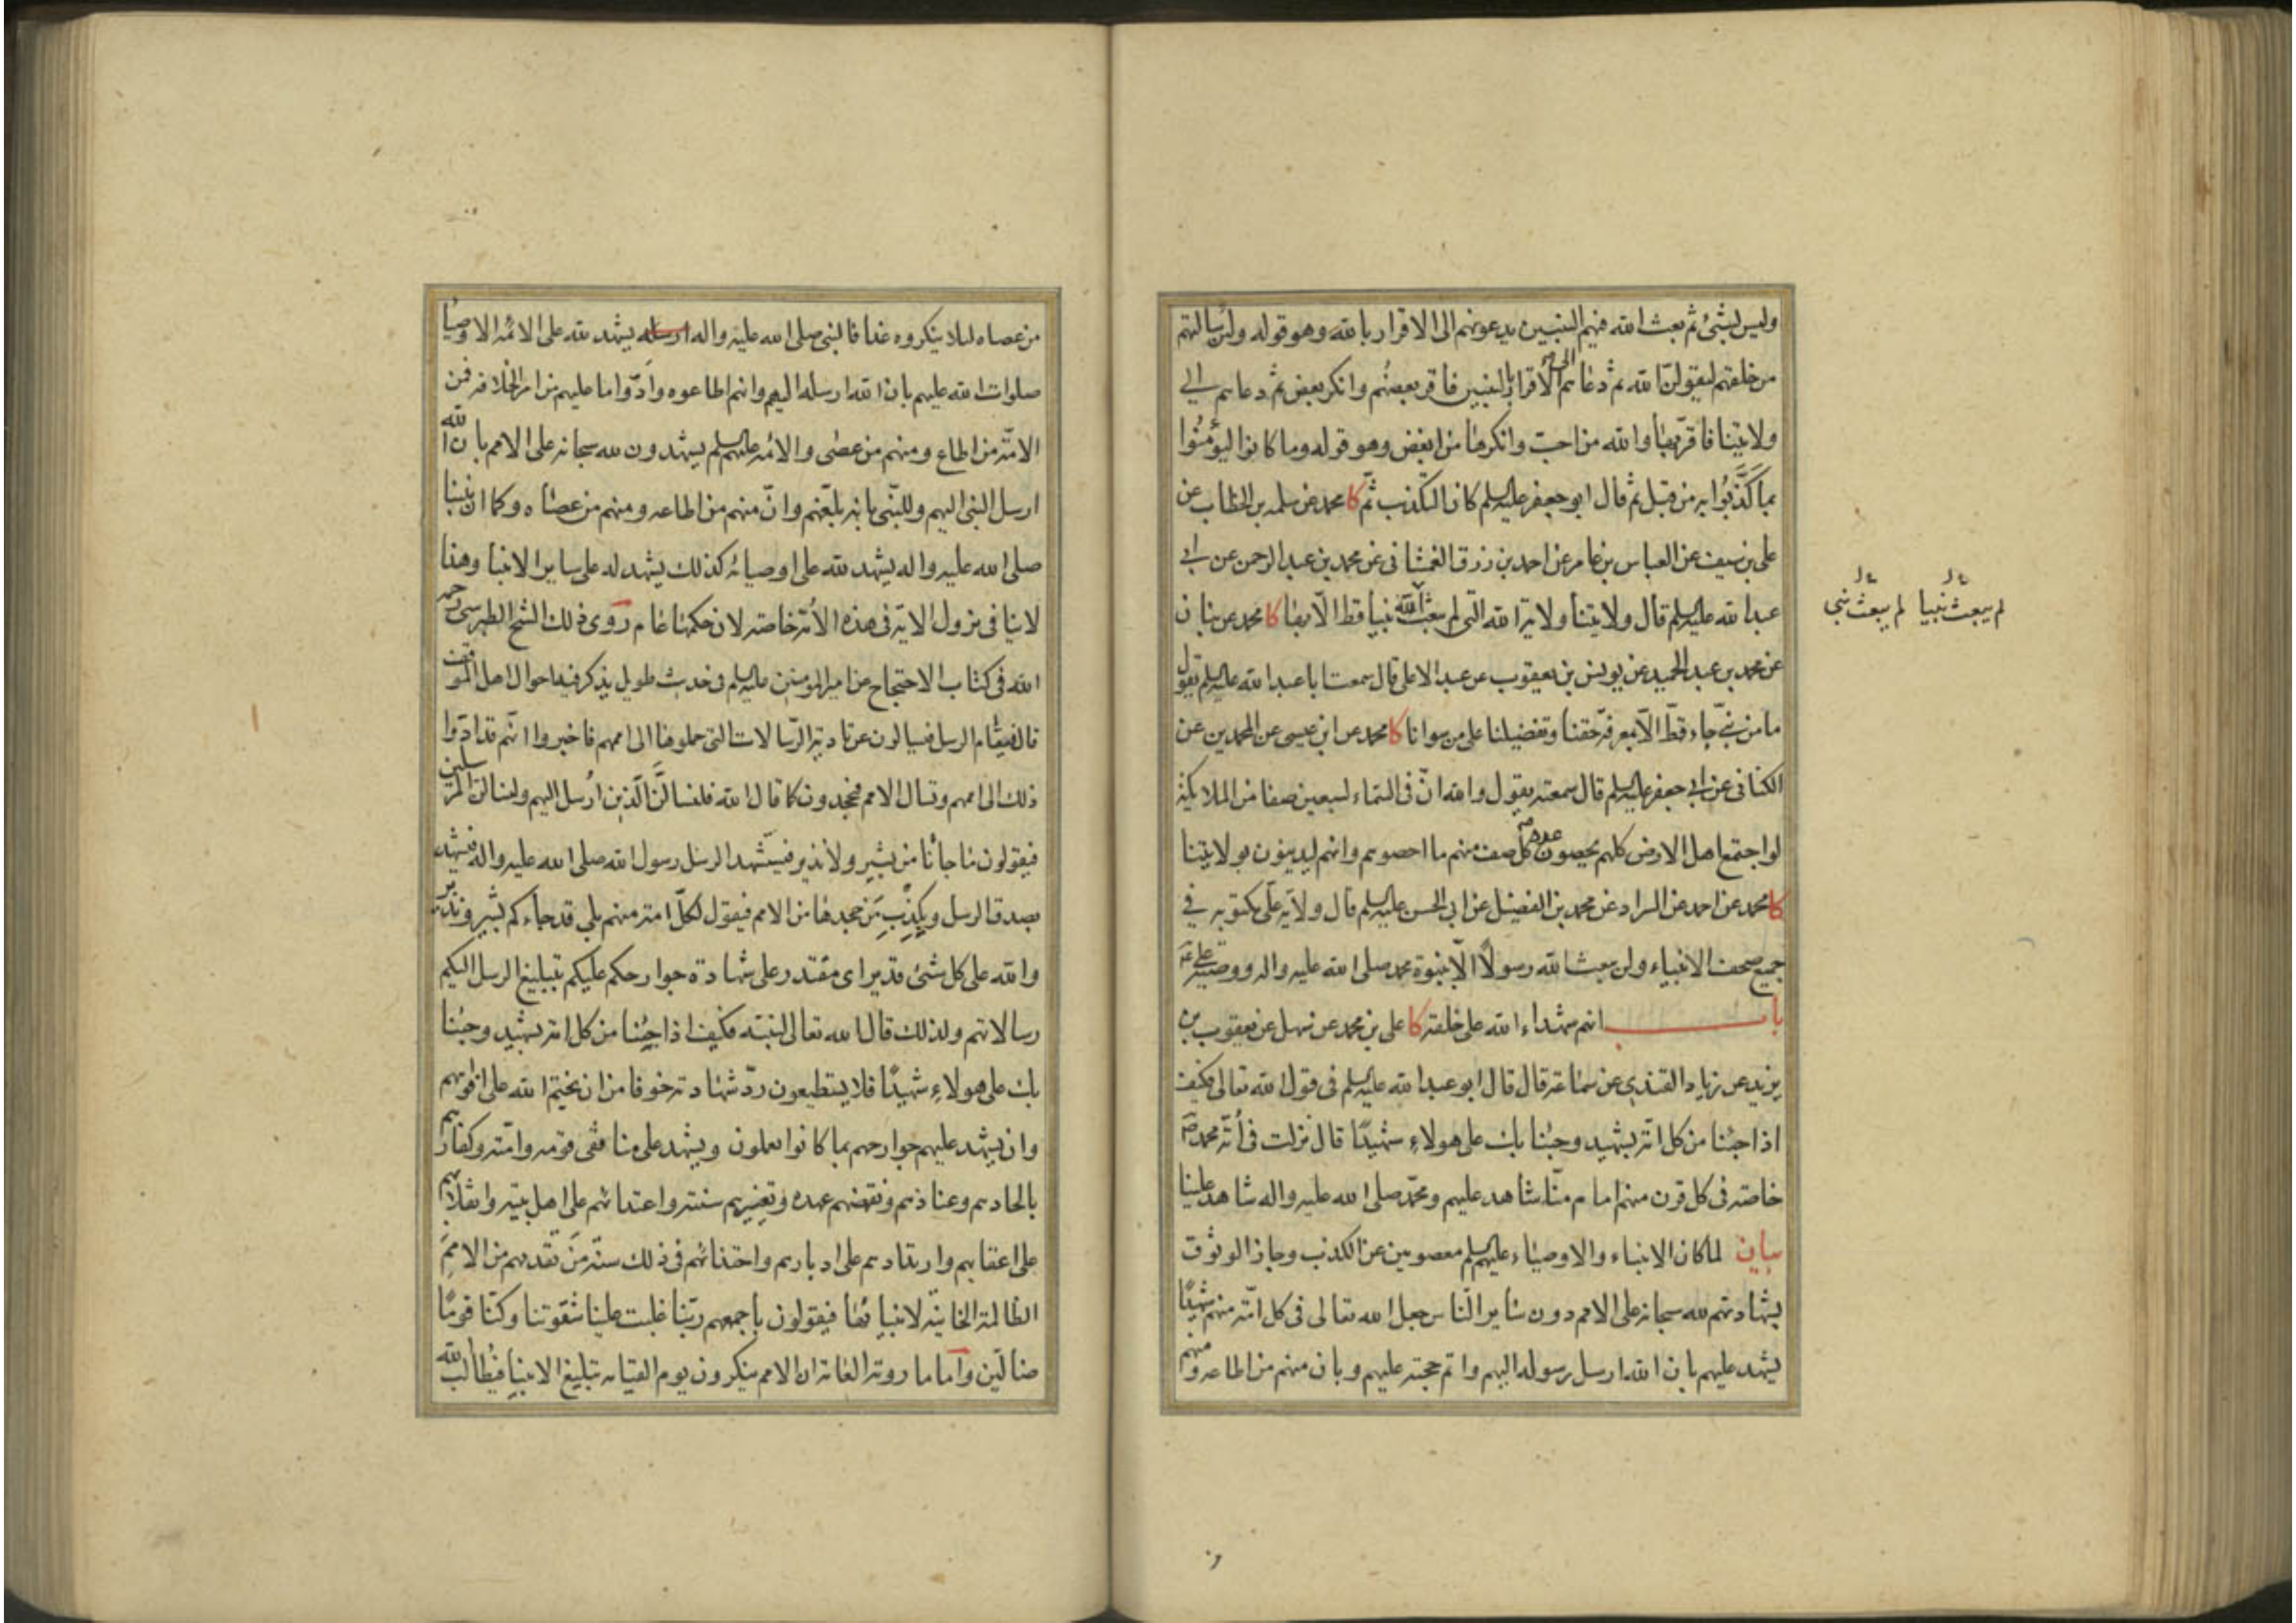 وليس بشئ ثم بعث الله فيهم النبيين يدعونهم الى الاقرار بالله وهو قوله ولئن سالتهم
من خلقهم ليقولن الله ثم دعاهم الى الاقرار بالنبيين فاقر بعضهم وانكر بعض ثم دعاهم الى
ولايتنا فاقر بها والله من احب وانكرها من ابغض وهو قوله وما كانوا ليؤمنوا
بما كذبوا به من قبل ثم قال ابو جعفر عليه السلم كان التكذيب ثم كا محمد عن سلمه بن الخطاب عن
على بن سيف عن العباس بن عامر عن احمد بن رزق الغمشانى عن محمد بن عبد الرحمن عن ابى
عبد الله عليه السلم قال ولايتنا ولاية الله التى لم يبعث الله نبيا قط الا بها كا محمد عن بنان
لم يبعث نبيا لم يبعث نبى
عن محمد بن عبد الحميد عن يونس بن يعقوب عن عبد الاعلى قال سمعت ابا عبد الله عليه السلم يقول
ما من نبى جاء قط الا بمعرفة حقنا وتفضيلنا على من سوانا كا محمد عن ابن عيسى عن المحمدين عن
الكنانى عن ابى جعفر عليه السلم قال سمعته يقول والله ان فى السماء لسبعين صفا من الملايكة
لو اجتمع اهل الارض كلهم يحصون عدد كل صف منهم ما احصوهم وانهم ليدينون بولايتنا
كا محمد عن احمد عن السراد عن محمد بن الفضيل عن ابى الحسن عليه السلم قال ولاية على مكتوبه فى
جميع صحف الانبياء ولن يبعث الله رسولا الا بنبوة محمد صلى الله عليه واله ووصيه على ع
باب انهم شهداء الله على خلقه كا على بن محمد عن سهل عن يعقوب بن
يزيد عن زياد القندى عن سماعه قال قال ابو عبد الله عليه السلم فى قول الله تعالى فكيف
اذا جئنا من كل امة بشهيد وجئنا بك على هولاء شهيدا قال نزلت فى أمة محمد ص
خاصه فى كل قرن منهم امام منا شاهد عليهم ومحمد صلى الله عليه واله شاهد علينا
بيان لما كان الانبياء والاوصياء عليهم السلم معصومين عن الكذب وجاز الوثوق
بشهادتهم لله سبحانه على الامم دون ساير الناس جعل الله تعالى فى كل امة منهم شهيدا
يشهد عليهم بان الله ارسل رسوله اليهم واتم حجته عليهم وبان منهم من اطاعه ومنهم
من عصاه لئلا ينكروه غدا فالنبى صلى الله عليه واله ارسله يشهد لله على الائمه الاوصيا
صلوات الله عليهم بان الله ارسله اليهم وانهم اطاعوه وأدوا ما عليهم من امر الخلافه فمن
الامة من اطاع ومنهم من عصى والائمه عليهم السلم يشهدون لله سبحانه على الامم بان الله
ارسل النبى اليهم وللنبى بانه بلغهم وان منهم من اطاعه ومنهم من عصاه وكما ان نبينا
صلى الله عليه واله يشهد لله على اوصيائه كذلك يشهد له على ساير الانبيا وهذا
لا ينافى نزول الاية فى هذه الأمة خاصه لان حكمها عام روى ذلك الشيخ الطبرسى رحمه
الله فى كتاب الاحتجاج عن امير المومنين عليه السلم فى حديث طويل يذكر فيه احوال اهل الموقف
قال فيقام الرسل فيسالون عن تادية الرسالات التى حملوها الى اممهم فاخبروا انهم قد ادوا
ذلك الى اممهم وتسال الامم فيجحدون كما قال الله فلنسالن الذين أرسل اليهم ولنسالن المرسلين
فيقولون ما جائنا من بشير ولا نذير فيستشهد الرسل رسول الله صلى الله عليه واله فيشهد
بصدق الرسل ويكذب من جحدها من الامم فيقول لكل امة منهم بلى قد جاءكم بشير ونذير
والله على كل شئ قدير اى مقتدر على شهادة جوارحكم عليكم بتبليغ الرسل اليكم
رسالاتهم ولذلك قال الله تعالى لنبيه فكيف اذا جئنا من كل امة بشهيد وجئنا
بك على هولاء شهيدا فلا يستطيعون رد شهادته خوفا من ان يختم الله على افواههم
وان يشهد عليهم جوارحهم بما كانوا يعملون ويشهد على منافقى قومه وامته وكفارهم
بالحادهم وعنادهم ونقضهم عهده وتغييرهم سنته واعتدائهم على اهل بيته وانقلابهم
على اعقابهم وارتدادهم على ادبارهم واحتذائهم فى ذلك سنة من تقدمهم من الامم
الظالمة الخاينة لانبيائها فيقولون باجمعهم ربنا غلبت علينا شقوتنا وكنا قوما
ضالين وأما ما روته العامة ان الامم ينكرون يوم القيامه تبليغ الانبيا فيطالب الله